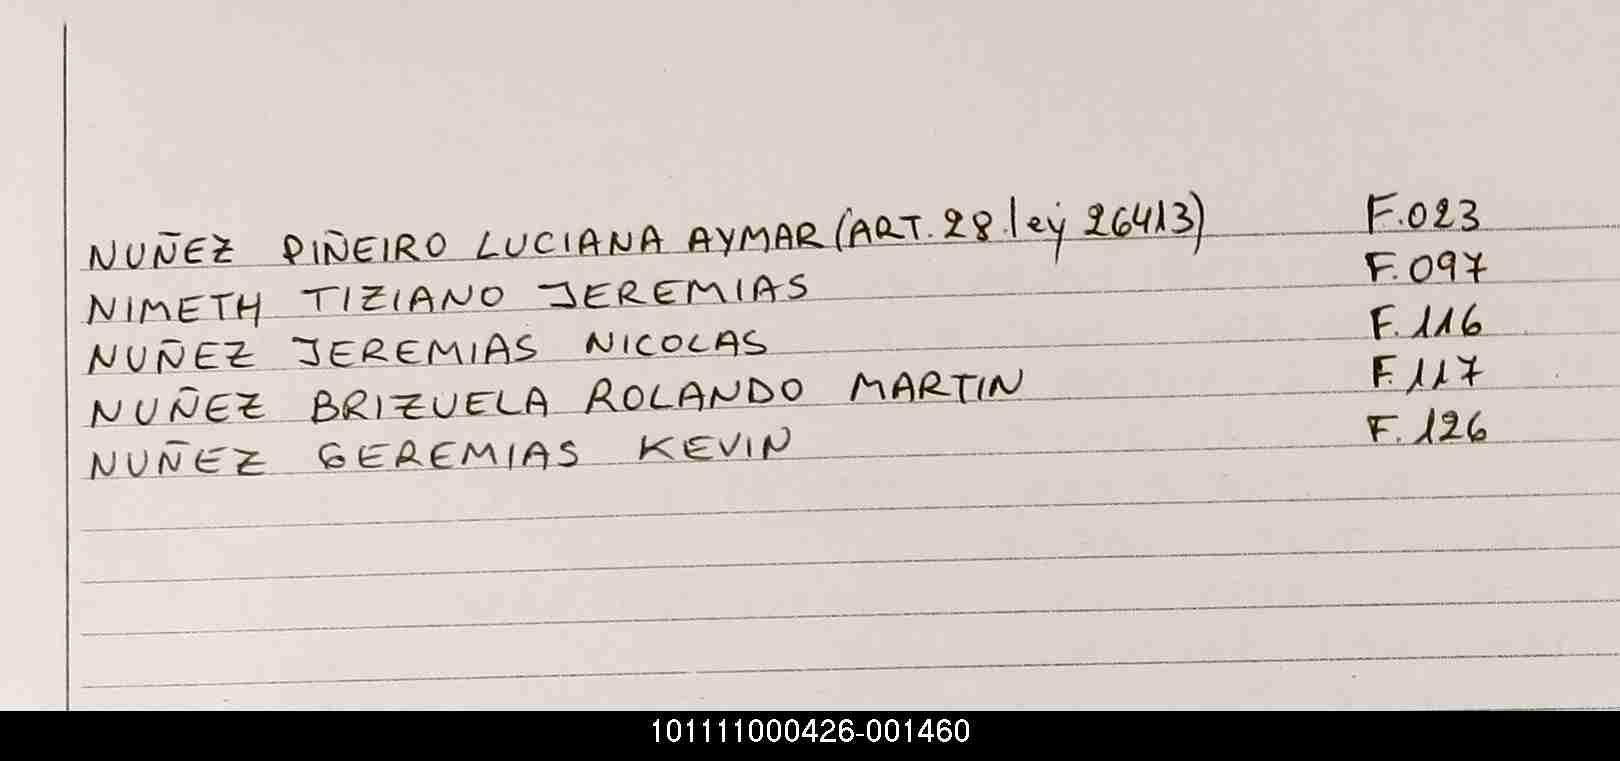 NUÑEZ PIÑEIRO LUCIANA AYMAR (ART. 28. ley 26413) F.023
NIMETH TIZIANO JEREMIAS F.097
NUÑEZ JEREMIAS NICOLAS F.116
NUÑEZ BRIZUELA ROLANDO MARTIN F.117
NUÑEZ GEREMIAS KEVIN F.126
101111000426-001460